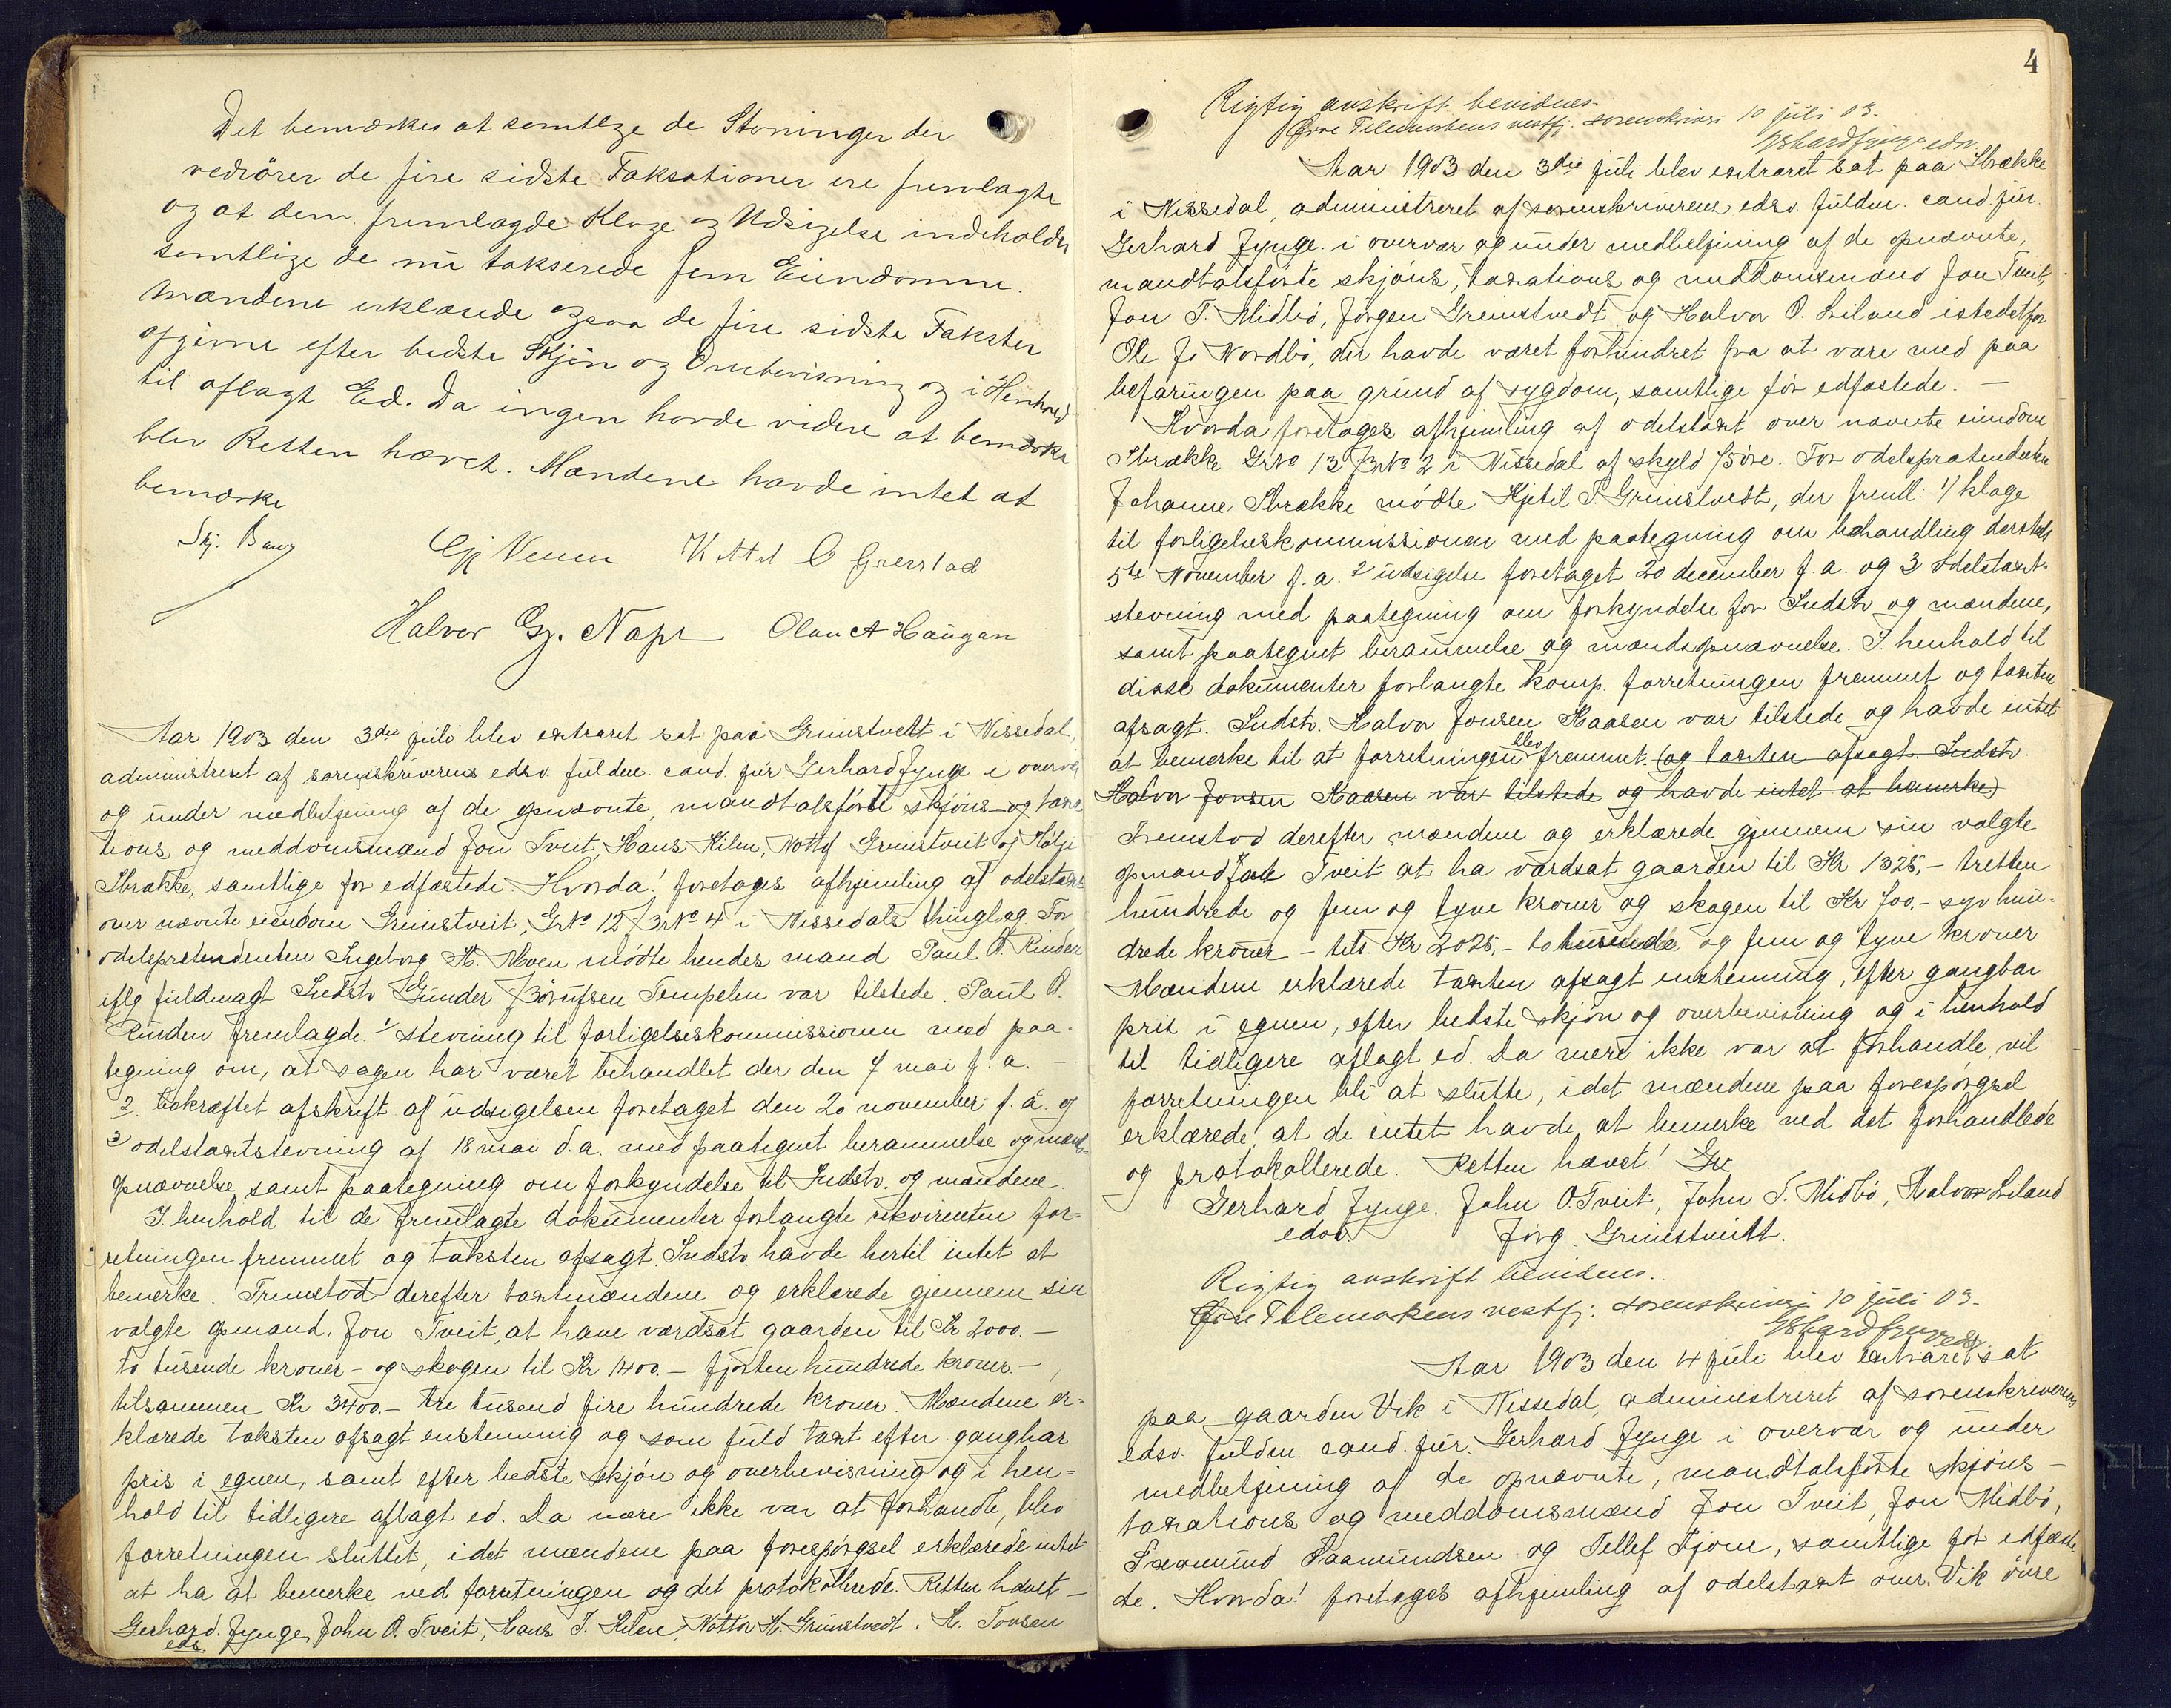 Det bemærkes at samtlige de Stevninger der
vedrörer de fire sidste Taksationer ere fremlagte
og at dem fremlagde Klage og Udsigelse indeholder
samtlige de nu takserede fem Eiendomme.
Mændene erklærede ogsaa de fire sidste Takster
afgivne efter bedste Skjön og Overbevisning og i Henhold
til aflagt Ed. Da ingen havde videre at bemærke
blev Retten hævet. Mændene havde intet at
bemærke
Skj. Bang Gj Veum Kittel O Grerstad
Halver Gj. Naper Olav A Haugan
Aar 1903 den 3die juli blev extraret sat paa Grimstvedt i Nissedal,
administreret af sorenskriverens edsv. fuldm. cand. jur Gerhard Jynge i overvær
og under medbetjening af de opnævnte, mandtalsförte skjöns- og taxa
tions og meddomsmænd Jon Tveit, Hans Kilen, Nottof Grimstveit og Hölje
Strække, samtlige för edfæstede. Hvorda! foretages afhjemling af odelstakst
over nævnte eiendom Grimstveit, GNo 12 BNo 4 i Nissedals thinglag. For
odelspretendenten Ingeborg H. Moen mödte hendes mand Paul O. Rinden
iflg fuldmagt Indstv Gunder Börufsen Tempelen var tilstede. Paul O.
Rinden fremlagde 1/ stevning til forligelseskommissionen med paa-
tegning om, at sagen har været behandlet der den 7 mai f. a. –
2. bekræftet afskrift af udsigelsen foretaget den 20 november f. a. og
3/ odelstaxtstevning af 18 mai d. a. med paategnet berammelse og mænds-
opnævnelse, samt paategning om forkyndelse til Indstv. og mændene.
I henhold til de fremlagte dokumenter forlangte rekvirenten for-
retningen fremmet og taksten afsagt. Indstv. havde hertil intet at
bemerke. Fremstod derefter taxtmændene og erklærede gjennem sin
valgte opmand, Jon Tveit, at have værdsat gaarden til Kr 2000.–
to tusende kroner – og skogen til Kr 1400.– fjorten hundrede kroner.–
tilsammen Kr 3400.– tre tusend fire hundrede kroner. Mændene er-
klærede taksten afsagt enstemmig og som fuld taxt efter gangbar
pris i egnen, samt efter bedste skjön og overbevisning og i hen-
hold til tidligere aflagt ed. Da mere ikke var at forhandle, blev
forretningen sluttet, idet mændene paa forespörgsel erklærede intet
at ha at bemerke ved forretningen og det protokollerede. Retten hævet –
Gerhard Jynge, John O. Tveit, Hans T. Kilen, Nottov H. Grimstvedt. H. Tovsen
eds.
4
Rigtig avskrift bevidnes.
Övre Telemarkens vestfj. sorenskriveri 10 juli 03.
Gerhard Jynge edsv.
Aar 1903 den 3die juli blev extraret sat paa Strække
i Nissedal, administreret af sorenskriverens edsv. fuldm. cand. jur.
Gerhard Jynge i overvær og under medbetjening af de opnævnte,
mandtalsförte skjöns, taxations og meddomsmænd Jon Tveit,
Jon T. Midbö, Jörgen Greimstvedt og Halvor O. Liland istedetfor
Ole J. Nordbö, der havde været forhindret fra at være med paa
befaringen paa grund af sygdom, samtlige för edfæstede. –
Hvorda foretages afhjemling af odelstaxt over nævnte eiendom
Strække GNo 13 BNo 2 i Nissedal af skyld 15 öre. For odelsprætendenten
Johanne Strække mödte Kjetil S. Grimstvedt, der freml: 1/ klage
til forligelseskommissionen med paategning om behandling dersteds
5te November f. a. 2/ udsigelse foretaget 20 december f. a. og 3 Odelstaxt-
stevning med paategning om forkyndelse for Indstv og mændene,
samt paategnet berammelse og mandsopnævnelse. I henhold til
disse dokumenter forlangte komp. forretningen fremmet og taxten
afsagt. Indstv. Halvor Jonsen Haasen var tilstede og havde intet
at bemerke til at forretningen blev fremmet. (og taxten afsagt. Indstv.
Halvor Jonsen Haasen var tilstede og havde intet at bemerke)
Fremstod derefter mændene og erklærede gjennem sin valgte
opmand John Tveit at ha værdsat gaarden til Kr 1325,– tretten
hundrede og fem og tyve kroner og skogen til Kr 700.– syv hun-
drede kroner – tils. Kr 2025,– to tusende og fem og tyve kroner
Mændene erklærede taxten afsagt enstemmig, efter gangbar
pris i egnen, efter bedste skjön og overbevisning og i henhold
til tidligere aflagt ed. Da mere ikke var at forhandle, vil
forretningen bli at slutte, idet mændene paa forespörgsel
erklærede, at de intet havde at bemerke ved det forhandlede
og protokollerede. Retten hævet!
Gerhard Jynge. John O. Tveit, John T. Midbö, Halvor Liland
edsv. Jörg. Grimstveitt.
Rigtig avskrift bevidnes.
Övre Telemarkens vestfj: sorenskriveri 10 juli 03.
Gerhard Jynge edsv
Aar 1903 den 4 juli blev extraret sat
paa gaarden Vik i Nissedal, administreret af sorenskriverens
edsv. fuldm. cand. jur. Gerhard Jynge i overvær og under
medbetjening af de opnævnte, mandtalsförte skjöns –
taxations og meddomsmænd Jon Tveit, Jon Midbö,
Saamund Aamundsen og Tellef Tjom, samtlige för edfæste
de. Hvorda! foretages afhjemling af odelstaxt over Vik övre